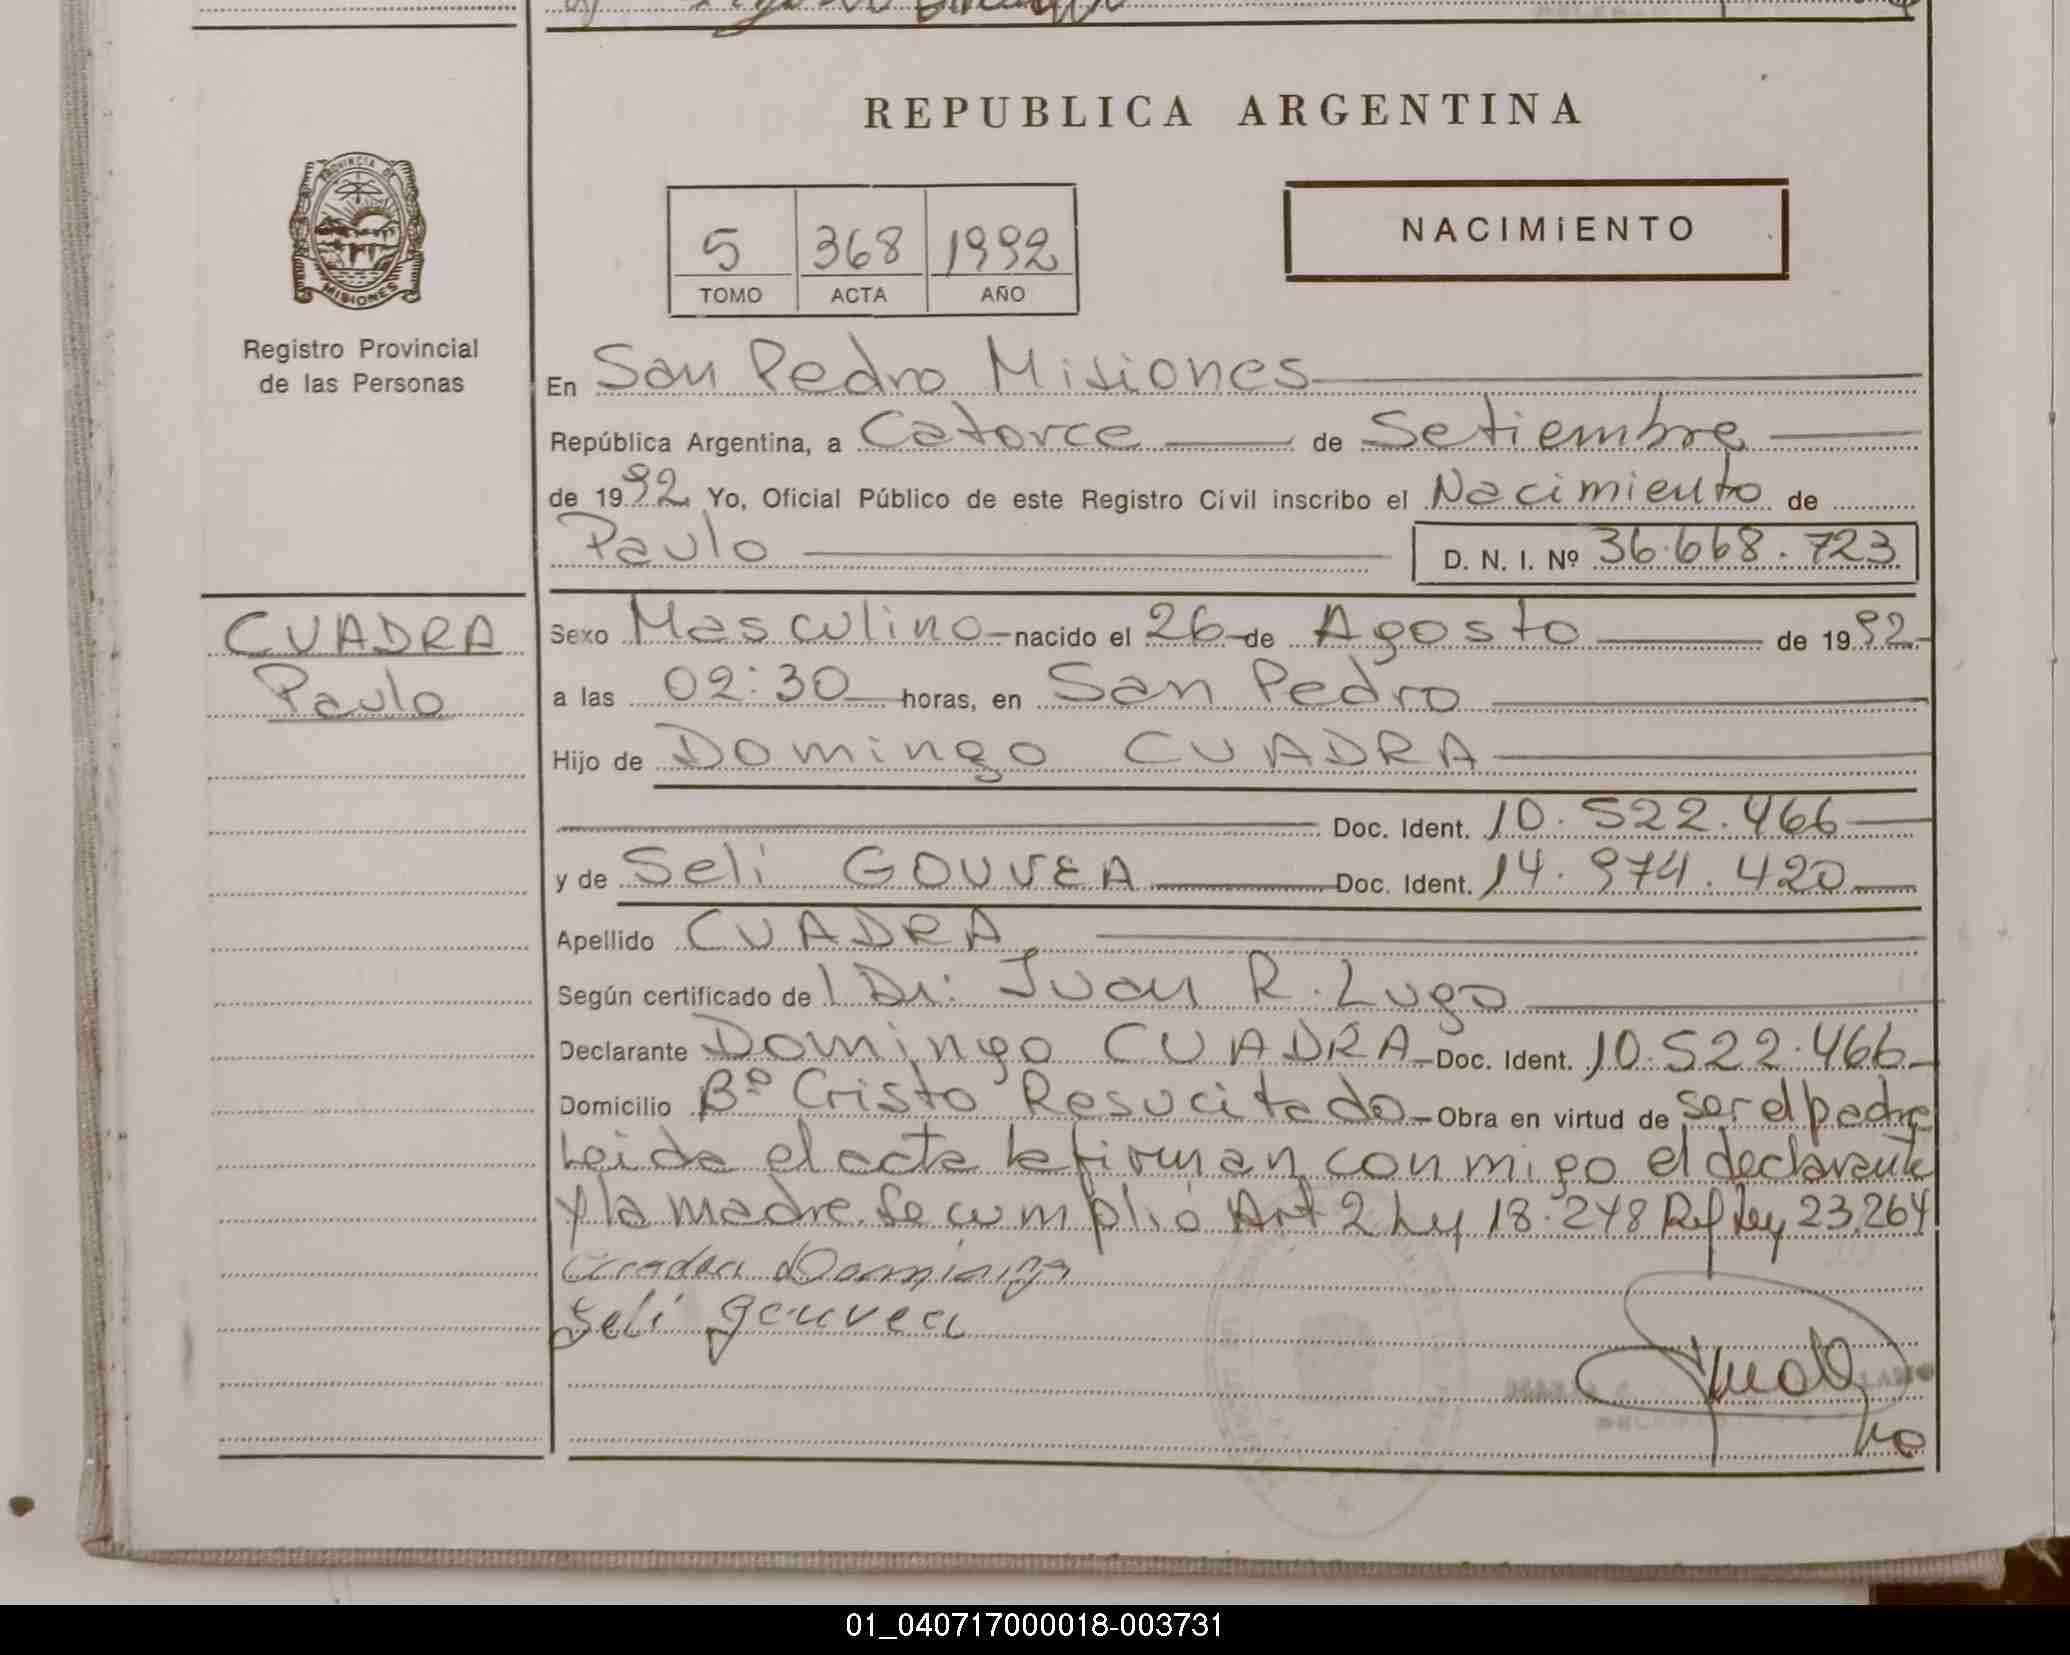 REPUBLICA ARGENTINA
PROVINCIA DE
MISIONES
Registro Provincial
de las Personas
5 368 1992
TOMO ACTA AÑO
NACIMIENTO
En San Pedro Misiones
República Argentina, a Catorce de Setiembre
de 1992 Yo, Oficial Público de este Registro Civil inscribo el Nacimiento de
Paulo D. N. I. Nº 36.668.723
CUADRA
Paulo
Sexo Masculino nacido el 26 de Agosto de 1992
a las 02:30 horas, en San Pedro
Hijo de Domingo CUADRA
Doc. Ident. 10.522.466
y de Seli GOUVEA Doc. Ident. 14.974.420
Apellido CUADRA
Según certificado de Dr: Juan R. Lugo
Declarante Domingo CUADRA Doc. Ident. 10.522.466
Domicilio Bº Cristo Resucitado Obra en virtud de ser el padre
Leida el acta la firman conmigo el declarante
y la madre. Se cumplió Art 2 Ley 18.248 Ref Ley 23.264
Cuadra Domingo
Seli gouvea
01_040717000018-003731